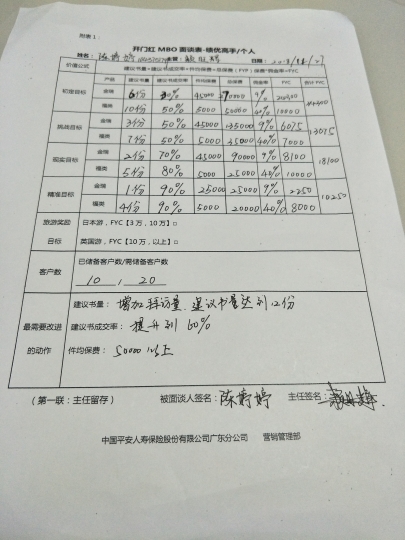 附表1:
开门红MBO面谈表-绩优高手/个人
姓名: 陈婷婷 日期: 2018/11/27
价值公式 建议书量×建议书成交率×件均保费=总保费(FYP);保费*佣金率=FYC
产品 建议书量 建议书成交率 件均保费 总保费 佣金率 FYC 合计FYC
初定目标 金瑞 6份 30% 45000 270000 9%
福类 10份 50% 5000 40% 10000
挑战目标 金瑞 3份 50% 45000 135000 9% 6075 13075
福类 7份 50% 5000 45000 40% 7000
现实目标 金瑞 2份 70% 45000 90000 9% 8100 18100
福类 5份 80% 5000 25000 40% 10000
精准目标 金瑞 1份 90% 25000 25000 9% 2250 10250
福类 4份 90% 5000 20000 40% 8000
旅游奖励 日本游,FYC【3万,10万】□
目标 英国游,FYC【10万,以上】□
客户数 已储备客户数/需储备客户数
10 , 20
最需要改进的动作 建议书量: 增加拜访量,建议书量达到12份
建议书成交率: 提升到60%
件均保费: 50000以上
(第一联:主任留存) 被面谈人签名: 陈婷婷 主任签名:
中国平安人寿保险股份有限公司广东分公司 营销管理部